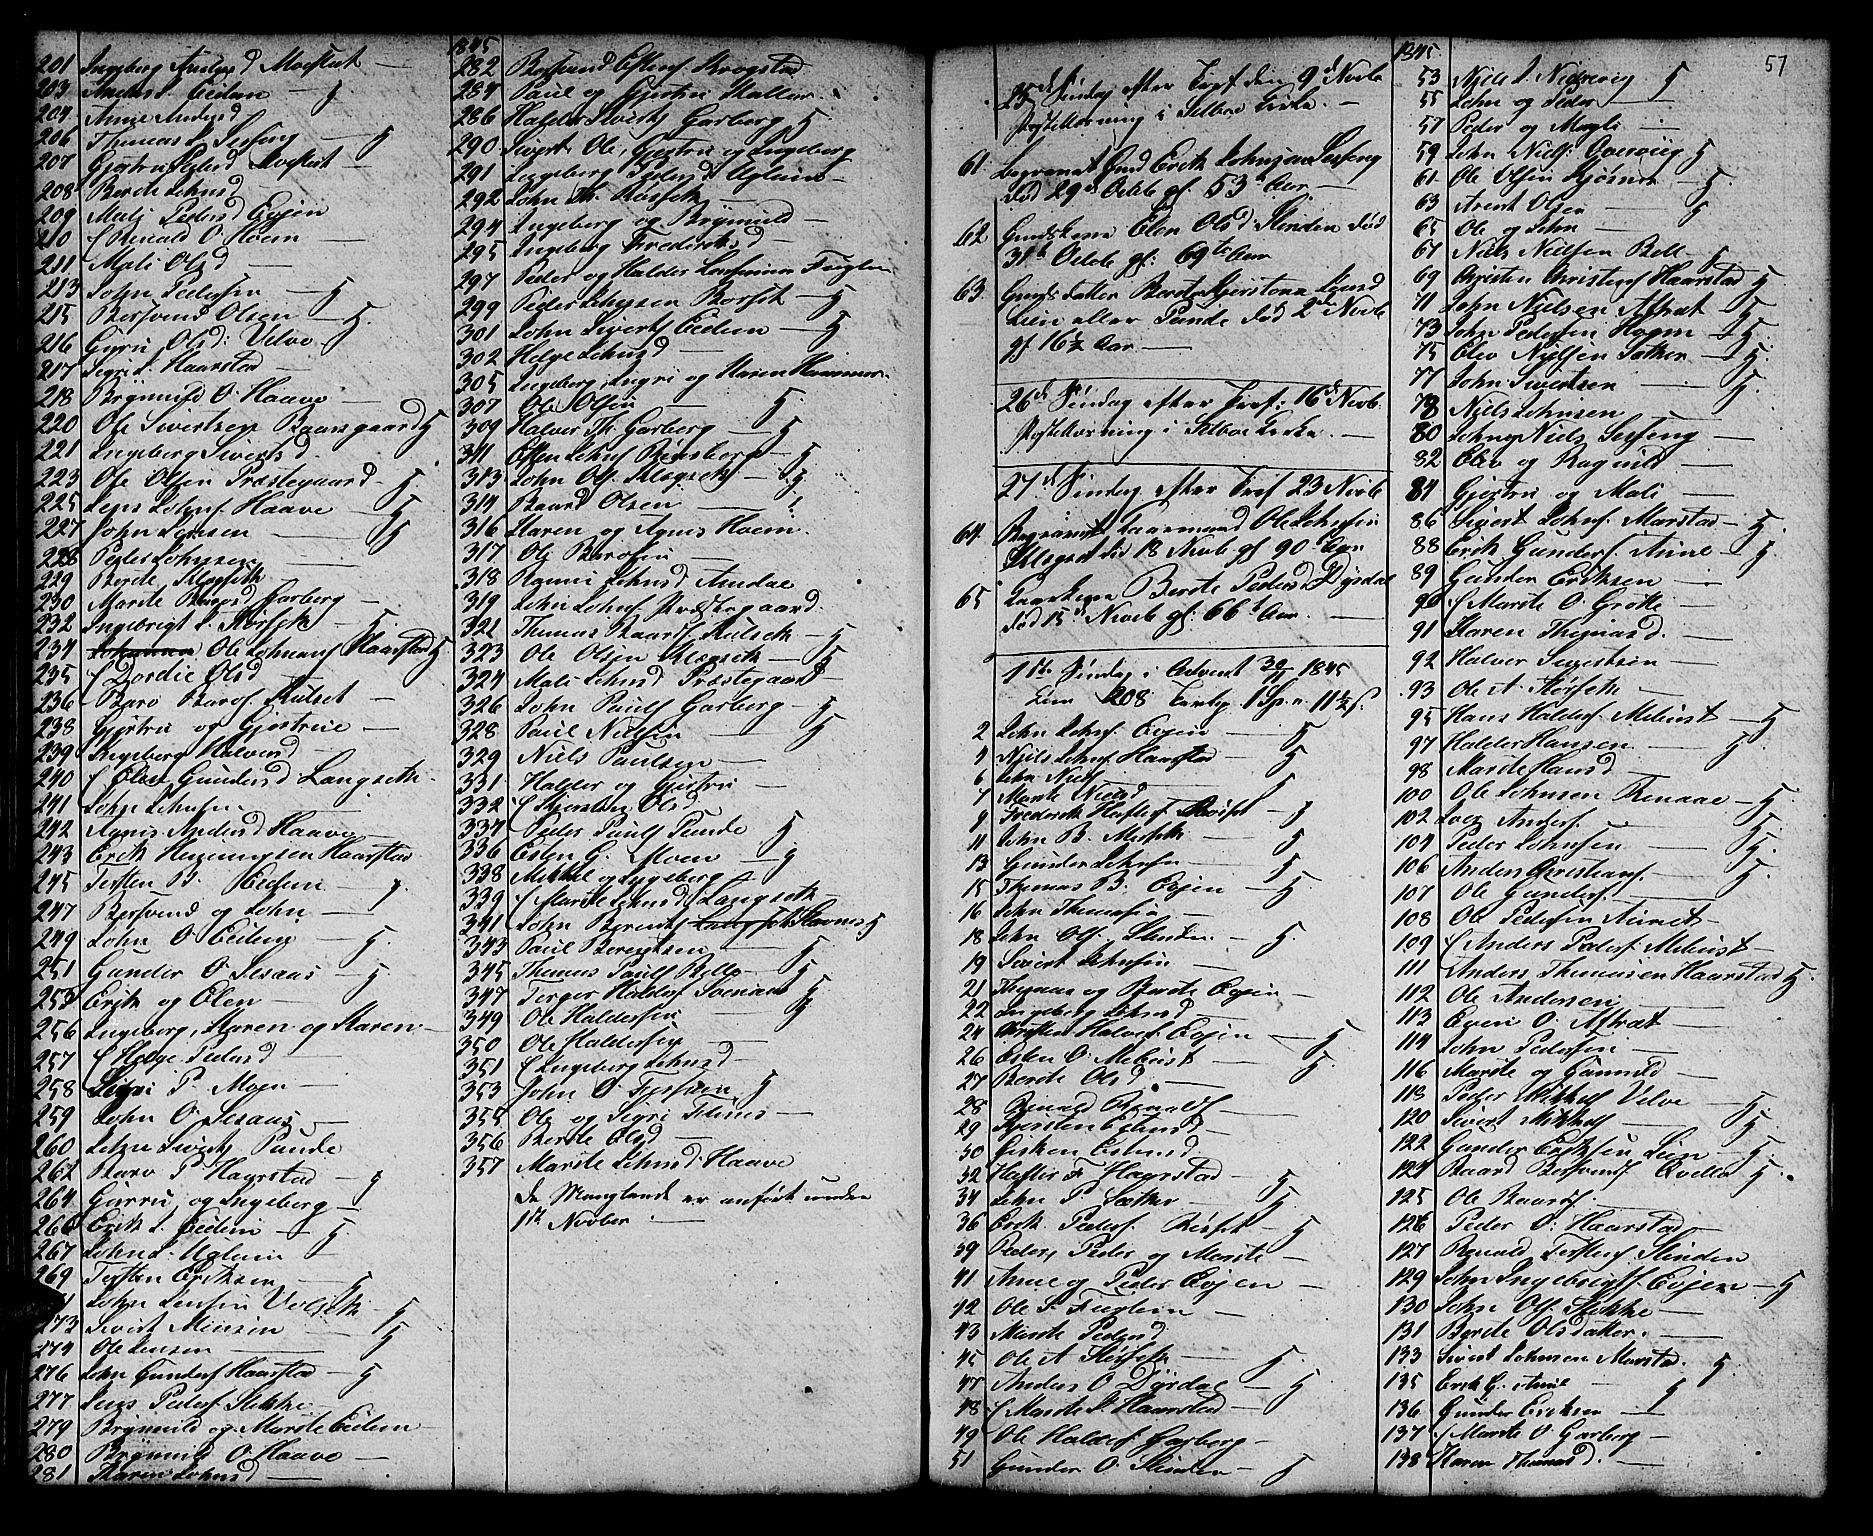 201 Ingeberg Andersd Moestut —
203 Anders L. Eidem — 5
204 Anne Andersd
206 Thomas L. Sesseng — 5
207 Gjertru Pedersd
208 Berete Johnsd —
209 Mali Pedersd Evjen
210 Renald O. Hoem —
211 Mali Olsd —
213 John Pedersen — 5
215 Bersvend Olsen — 5.
216 Guru Olsd: Velve
217 Sigri L. Haarstad —
218 Brynnild O. Haave —
220 Ole Sivertsen Baarsgaard 5
221 Ingeberg Sivertsd.
223 Ole Olsen Præstegaard — 5
225 Lens Johns Haave — 5
227 John Lensen — 5
228 Peder Johnsen
229 Berete Klegseth
230 Marite Garberg —
232 Ingebrigt L. Kjøsseth — 5
234 Ole Johnsens Haarstad 5
235 Dordie Olsd
236 Baro Bards. Kulset —
238 Gjertru og Gjertrue —
239 Ingeberg Halversd —
240 Elen Gundersd Langseth —
241 John Johnsen —
242 Agnis Andersd Haave —
243 Erik Henningsen Haarstad
245 Tersten B. Eidem — 5.
247 Bersvend og John —
249 John O. Eidem — 5.
251 Gunder O. Sesaas — 5
253 Erik og Elen —
256 Ingeberg, Karen og Karen —
257 Helge Pedersd —
258 Sigri P. Moen —
259 John O. Sesaas —
260 John Siverts Punde
262 Baro P. Haarstad — 5
264 Gurru og Ingeberg —
266 Erik L. Eidem — 5
267 John L. Uglem 5
269 Tersten Eriksen —
271 John Lensen Volseth — 5
273 Sivert Mensen — 5
274 Ole Lensen —
276 John Gunders Haarstad — 5
277 Lens Peders. Stokke
279 Brynnild og Marite Eidem
280 Brynnild O. Haave —
281 Karen Johnsd —
1845
282 Bersvend Estens Krogstad
284 Paul og Gjertru Kallar
286 Halder Siverts Garberg 5
290 Sivert, Ole, Gjertru og Ingeberg
291 Ingeberg Pedersd Uglem —
292 John Th. Røsseth —
294 Ingeberg og Brynnild —
295 Ingeberg Frederiksd —
297 Peder og Halder Fuglem
299 Peder Johnsen Borset — 5
301 John Siverts Eidem — 5
302 Helge Johnsd —
305 Ingeberg, Ingri og Karen Hammer.
307 Ole Olsen — 5
309 Halver Th. Garberg — 5
311 Esten Johns Rensberg — 5
313 John Ols. Klegseth — 5
314 Baard Olsen —
316 Karen og Agnis Hoem.
317 Ole Barosen —
318 Ragni Johnsd Amdal
319 John Johns Præstegaard
321 Thomas Baards Kulseth — 5
323 Ole Olsen Klegseth — 5
324 Mali Johnsd Præstegaard
326 John Pauls Garberg — 5
328 Paul Nielsen — 5
329 Niels Paulsen —
331 Halder og Gjertru —
332 Kjersten Olsd —
334 Peder Pauls Punde 5
336 Esten G. Moen — 5
338 Mikkel og Ingeberg
339 Marite Johnsd Langseth —
341 John Berents Stamnes 5
343 Paul Berentsen — 5
345 Thomas Pauls Balle — 5
347 Torger Halders Svenaas 5
349 Ole Haldersen —
350 Ole Haldersen —
351 Ingeberg Johnsd —
353 John O. Fossen 5
355 Ole og Sigri Flenes —
356 Berete Olsd —
357 Marite Johnsd Haave
de Manglende er anført under
1ste Novber. —
25d Søndag efter Tref. den 9d Novb.
Postilløsning i Selboe Kirke. —
61. Begravet Gmd Erik Johnsen Sesseng
død 29d Octb. gl. 53 Aar —
62. Gmdskone Elen Olsd: Slinden død
31te Octb. gl: 69 Aar
63. Gmds datter Berete Kjerstine Lensd
Lien eller Punde død 2d Novb.
gl 16½ Aar —
26d Søndag efter Tref: 16d Novb.
Postilløsning i Selboe Kirke. —
27d Søndag efter Tref 23 Novb
64. Begravet Kaarmand Ole Johnsen
Klegset død 18 Novb gl 90 Aar
65 Kaarkone Berete Pedersd Dyrdal
død 15d Novb. gl: 66 Aar. —
1ste Søndag i Advent 30/11 1845
Com 208 1 Sp. 11½ s.
2 John Johns. Evjen — 5
4 Niels Johns. Haarstad — 5
6 John Niels —
7 Marit Nielsd — 5
9 Frederik Hafters. — 5
11 John B. Mosseth — 5
13 Gunder Johnsen — 5
15 Thomas B. Evjen — 5.
16 John Thomasen —
18 John Ols. Slinden — 5.
19 Sivert Johnsen —
21 Thomas og Berete Evjen —
22 Ingeberg Johnsd —
24 Halvers. Evjen — 5
26 Esten O. Melvist — 5.
27 Berete Olsd. —
28 Renald Renalds —
29 Kjersten Estensd —
30 Gisken Estensd —
32 Hafter F. Haarstad — 5
34 John P. Sæther — 5
36 Erik Peders. — 5
39 Peder, Peder og Marite —
41 Anne og Peder Evjen —
42 Ole S. Fuglem —
43 Marite Pedersd
45 Ole A. Størseth — 5.
47 Anders O. Dyrdal — 5
48 Marite I. Haarstad —
49 Ole Halders Garberg —
51 Gunder O. Slinden — 5
1845
57
53 Niels I. Nervig 5
55 John og Peder —
57 Peder og Magli —
59 John Niels: Overvig 5
61 Ole Olsen Kjøsnes — 5.
63 Arent Olsen — 5
65 Ole og John —
67 Niels Nielsen Balle — 5
69 Christen Christens Haarstad 5
71 John Nielsen Aftret — 5
73 John Pedersen Hogen — 5
75 Elev Nielsen Sæther — 5
77 John Sivertsen — 5.
78 Niels Johnsen —
80 John og Niels Sesseng —
82 Elev og Ragnild —
84 Gjertru og Mali —
86 Sivert Johns. Marstad — 5
88 Erik Gunders. Aune — 5
89 Gunder Eriksen —
90 Marite O. Grøtte —
91 Karen Thomasd. —
92 Halver Sivertsen —
93 Ole A. Størseth —
95 Hans Halders. Melvist — 5
97 Halder Hansen — 5.
98 Marite Hansd —
100 Ole Johnsen Renaae — 5
102 Iver Anders. — 5
104 Peder Johnsen — 5.
106 Anders Christians. — 5
107 Ole Gunders. —
108 Ole Pedersen Aunet —
109 Anders Peders. Melvist —
111 Anders Thomasen Haarstad 5
112 Ole Andersen —
113 Even O. Aftret —
114 John Pedersen —
116 Marite og Gunnild —
118 Peder Mikkels Velve — 5
120 Sivert Mikkels — 5
122 Gunder Eriksen Lien — 5
124 Baard Bersvends Qvello 5
125 Ole Baards. —
126 Peder O. Haarstad —
127 Renald Terstens Slinden
129 John Ingebrigts. Evjen — 5
130 John Ols. Stokke —
131 Berete Olsdatter. —
133 Sivert Johnsen Marstad. 5
135 Erik G. Aune — 5
136 Gunder Eriksen —
137 Marite O. Garberg —
138 Karen Thomasd. —